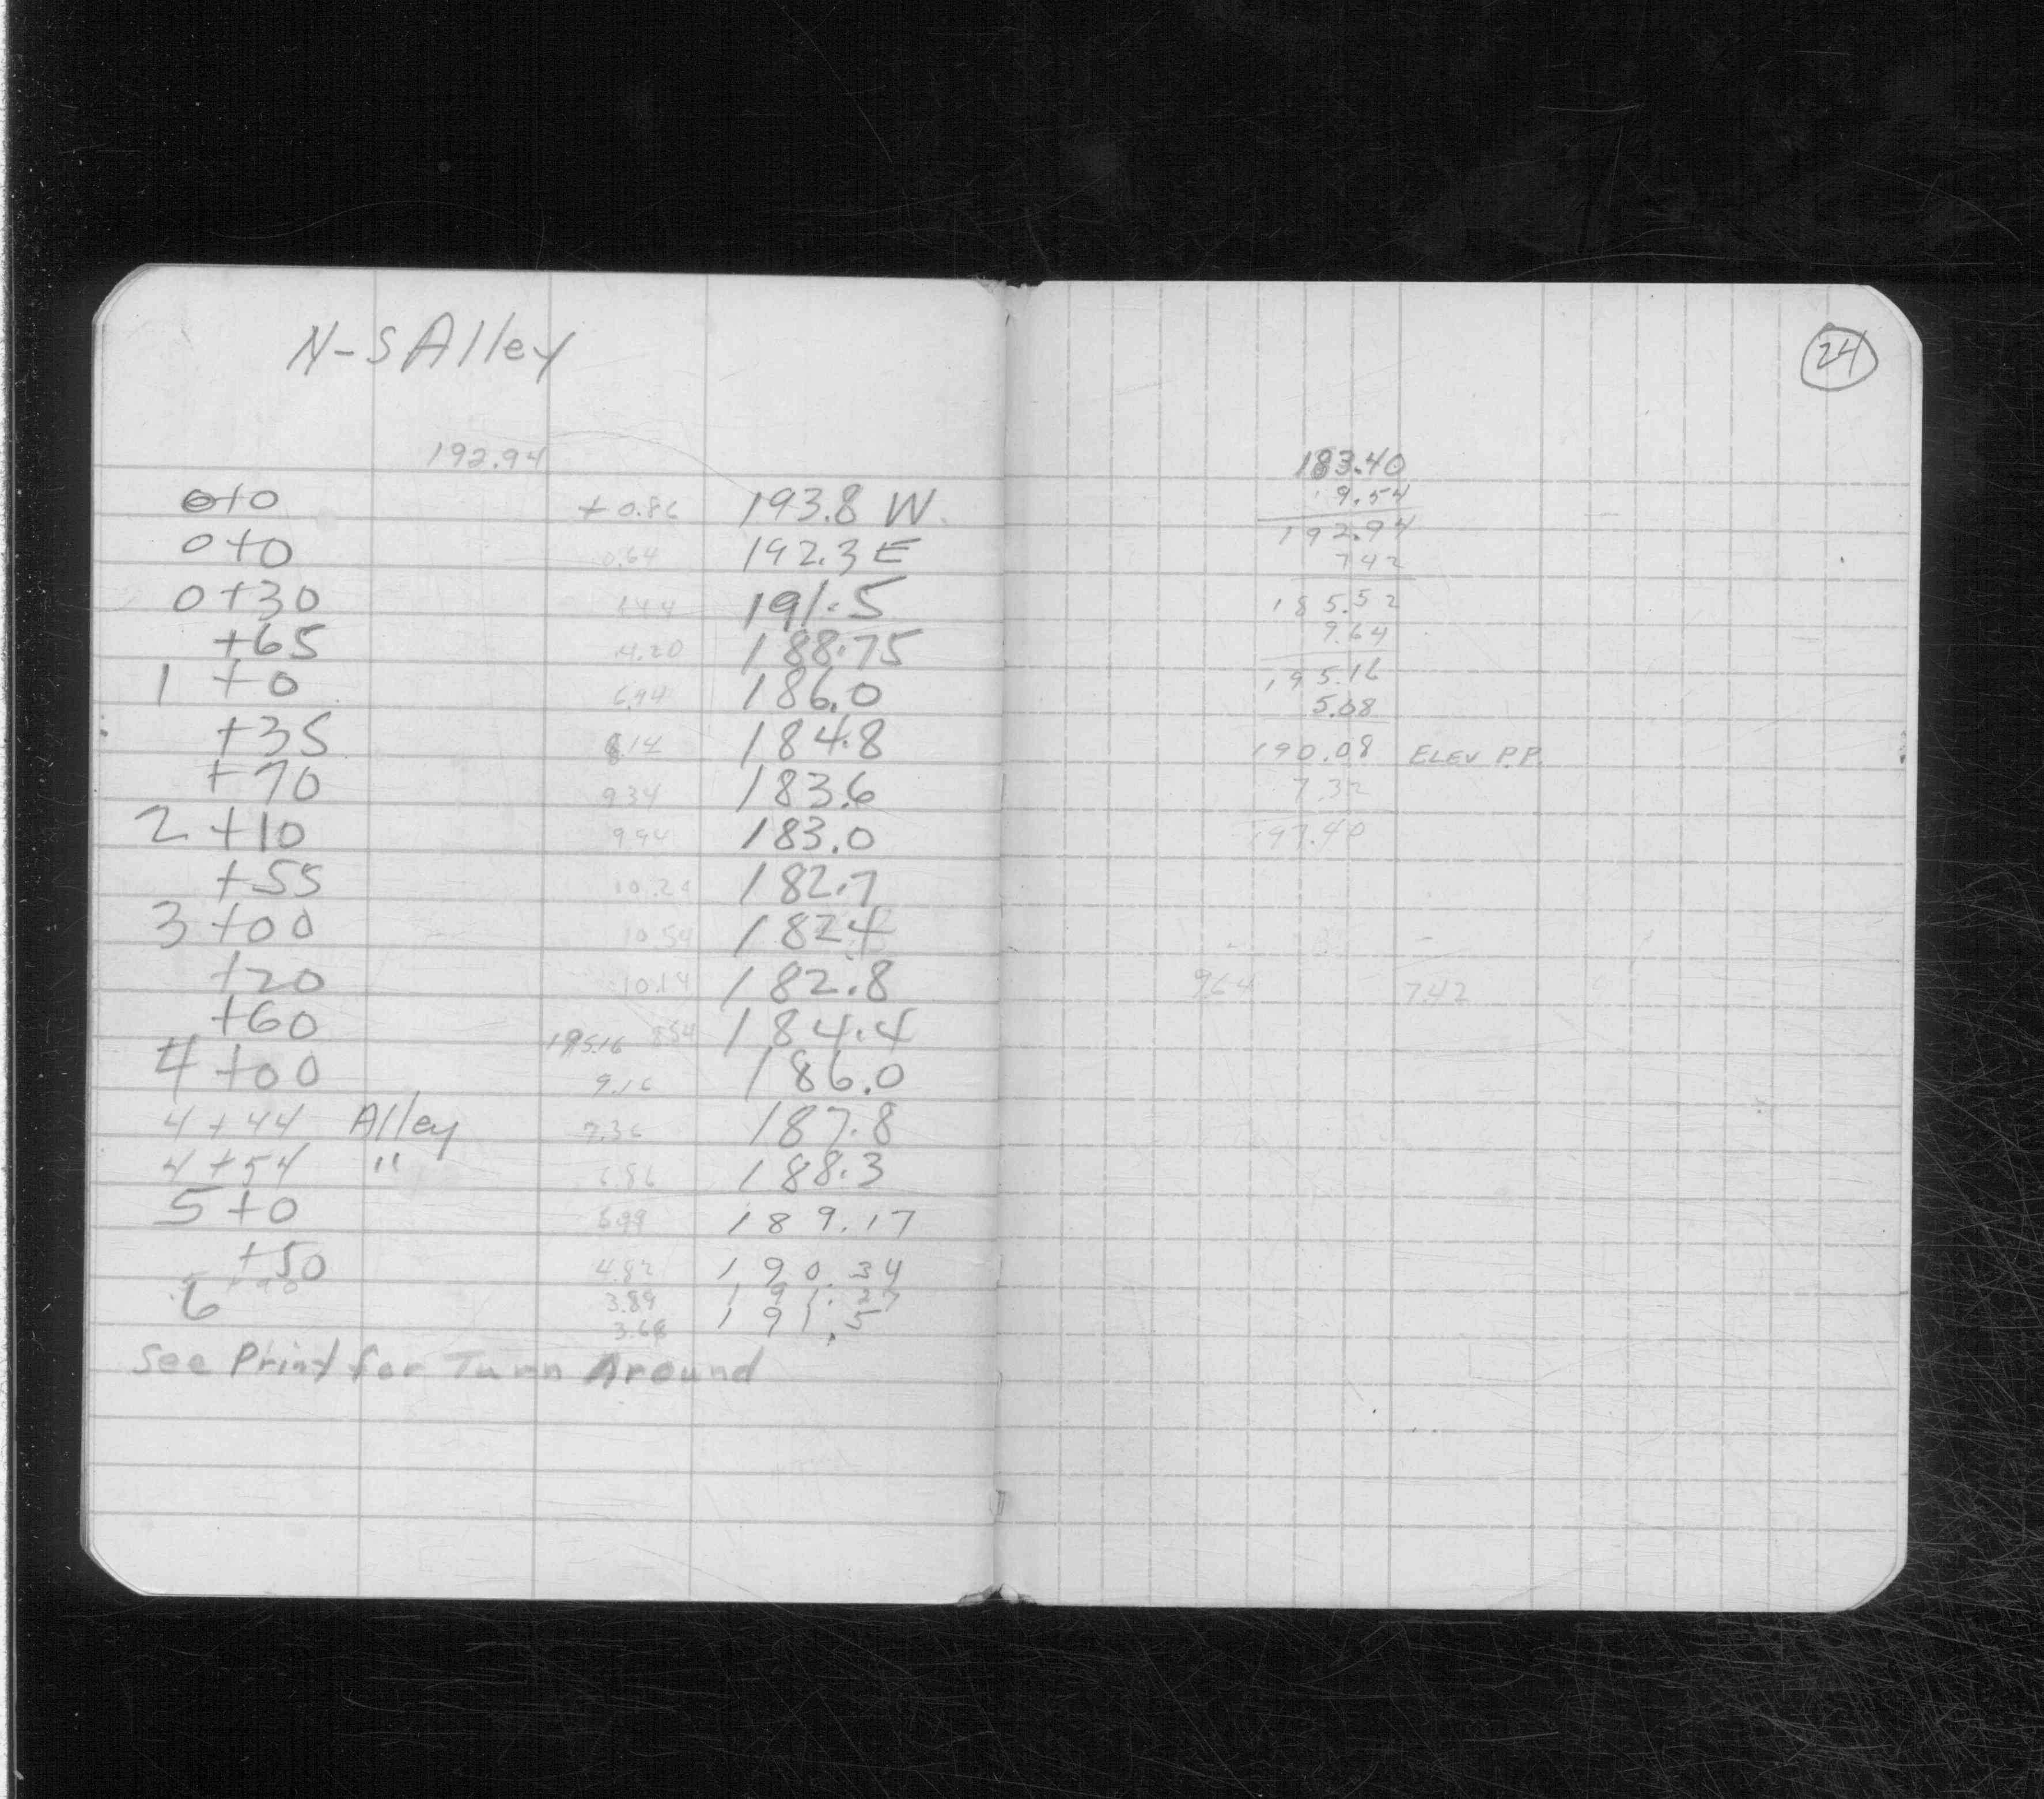 N-S Alley
192.94
0+0 +0.86 193.8 W.
0+0 0.64 192.3 E
0+30 1.44 191.5
+65 4.20 188.75
1+0 6.94 186.0
+35 8.14 184.8
+70 934 183.6
2+10 994 183.0
+55 10.24 182.7
3+00 10.54 182.4
+20 10.14 182.8
+60 195.16 854 184.4
4+00 9.16 186.0
4+44 Alley 7.36 187.8
4+54 " 6.86 188.3
5+0 5.99 189.17
+50 4.82 190.34
+90 3.89 191.27
6 3.66 191.5
See Print for Turn Around
24
183.40
9.54
192.94
742
185.52
9.64
195.16
5.08
190.08 ELEV P.P.
7.32
197.40
964 742